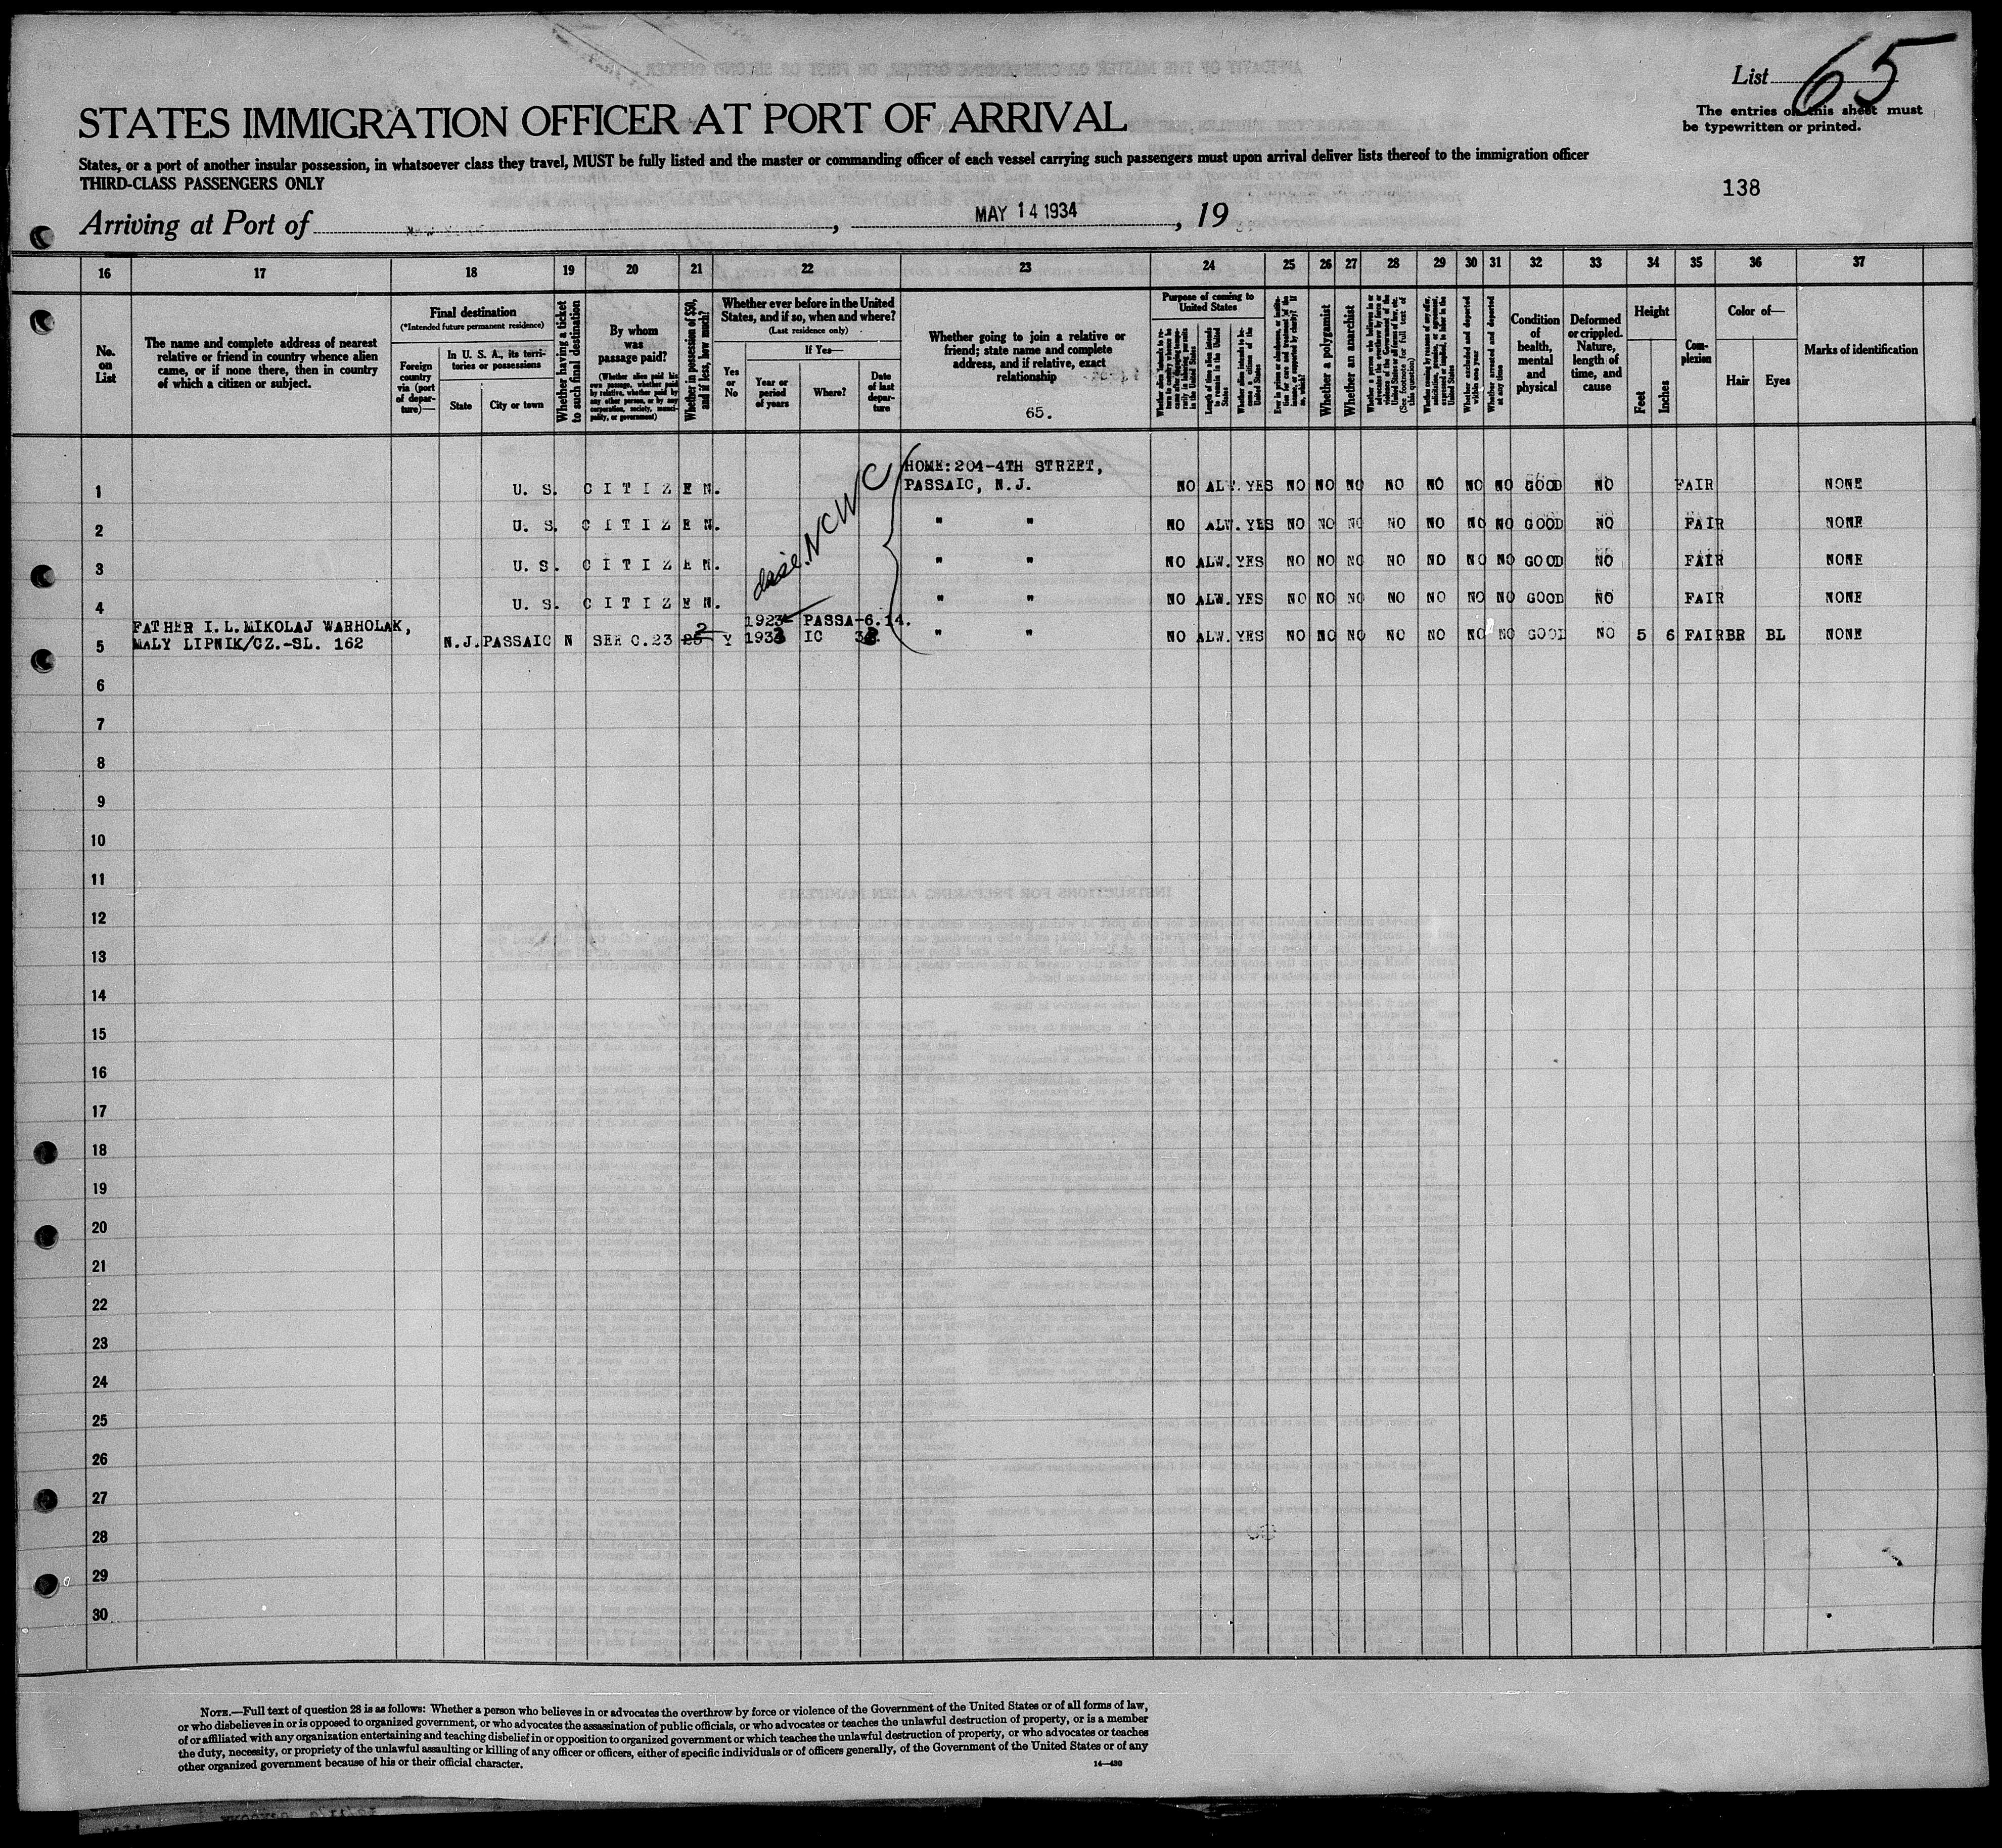 List 65
STATES IMMIGRATION OFFICER AT PORT OF ARRIVAL
The entries on this sheet must
be typewritten or printed.
States, or a port of another insular possession, in whatsoever class they travel, MUST be fully listed and the master or commanding officer of each vessel carrying such passengers must upon arrival deliver lists thereof to the immigration officer
THIRD-CLASS PASSENGERS ONLY
138
Arriving at Port of , MAY 14 1934 , 19
16 17 18 19 20 21 22 23 24 25 26 27 28 29 30 31 32 33 34 35 36 37
No.
on
List
The name and complete address of nearest
relative or friend in country whence alien
came, or if none there, then in country
of which a citizen or subject.
Final destination
(*Intended future permanent residence)
Foreign
country
via (port
of depar-
ture)—
In U. S. A., its terri-
tories or possessions
State
City or town
Whether having a ticket
to such final destination
By whom
was
passage paid?
(Whether alien paid his
own passage, whether paid
by relative, whether paid by
any other person, or by any
corporation, society, munici-
pality, or government)
Whether in possession of $50,
and if less, how much?
Whether ever before in the United
States, and if so, when and where?
(Last residence only)
Yes
or
No
If Yes—
Year or
period
of years
Where?
Date
of last
depar-
ture
Whether going to join a relative or
friend; state name and complete
address, and if relative, exact
relationship
65.
Purpose of coming to
United States
Length of time alien intends
to remain in the United
States
Whether alien intends to be-
come a citizen of the
United States
Whether a polygamist
Whether an anarchist
Whether excluded and deported
within one year
Whether arrested and deported
at any time
Condition
of
health,
mental
and
physical
Deformed
or crippled.
Nature,
length of
time, and
cause
Height
Feet
Inches
Com-
plexion
Color of—
Hair
Eyes
Marks of identification
HOME:204-4TH STREET,
1 U. S. CITIZEN. PASSAIC, N.J. NO ALW. YES NO NO NO NO NO NO NO GOOD NO FAIR NONE
2 U. S. CITIZEN. " " NO ALW. YES NO NO NO NO NO NO NO GOOD NO FAIR NONE
3 U. S. CITIZEN. " " NO ALW. YES NO NO NO NO NO NO NO GOOD NO FAIR NONE
4 U. S. CITIZEN. " " NO ALW. YES NO NO NO NO NO NO NO GOOD NO FAIR NONE
NCWC
FATHER I.L.MIKOLAJ WARHOLAK, 1923 PASSA-6.14.
5 MALY LIPNIK/CZ.-SL. 162 N.J. PASSAIC N SEE C.23 2 Y 1933 IC " " NO ALW. YES NO NO NO NO NO NO NO GOOD NO 5 6 FAIR BR BL NONE
6
7
8
9
10
11
12
13
14
15
16
17
18
19
20
21
22
23
24
25
26
27
28
29
30
NOTE.—Full text of question 28 is as follows: Whether a person who believes in or advocates the overthrow by force or violence of the Government of the United States or of all forms of law,
or who disbelieves in or is opposed to organized government, or who advocates the assassination of public officials, or who advocates or teaches the unlawful destruction of property, or is a member
of or affiliated with any organization entertaining and teaching disbelief in or opposition to organized government or which teaches the unlawful destruction of property, or who advocates or teaches
the duty, necessity, or propriety of the unlawful assaulting or killing of any officer or officers, either of specific individuals or of officers generally, of the Government of the United States or of any
other organized government because of his or their official character.
14—430